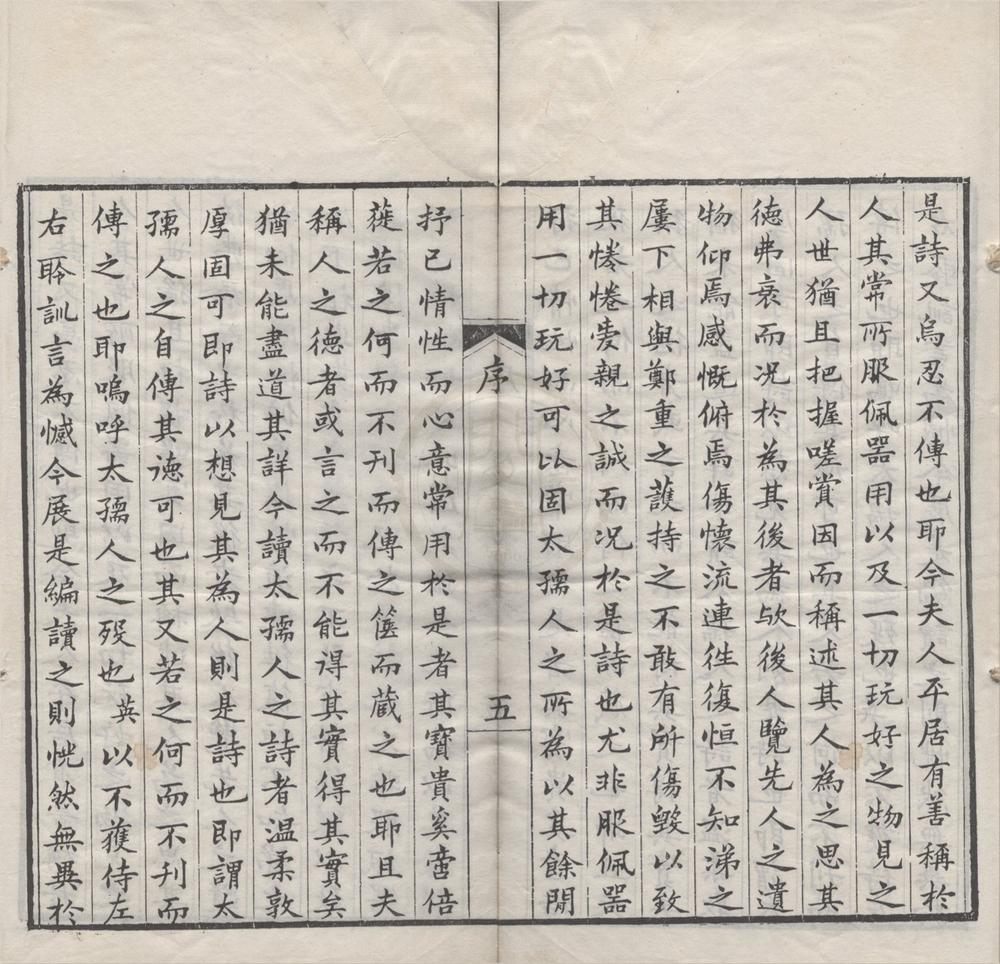 是詩又烏忍不傳也耶今夫人平居有善稱於
人其常所服佩器用以及一切玩好之物見之
人世猶且把握嗟賞因而稱述其人為之思其
徳弗衰而况於為其後者歟後人覽先人之遺
物仰焉感慨俯焉傷懷流連徃復恒不知涕之
屢下相與鄭重之䕶持之不敢有所傷毀以致
其惓惓愛親之誠而况於是詩也尤非服佩器
用一切玩好可比固太孺人之所為以其餘閒
序
五
抒已情性而心意常用於是者其寶貴奚啻倍
蓰若之何而不刊而傳之篋而蔵之也耶且夫
稱人之德者或言之而不能得其實得其實矣
猶未能盡道其詳今讀太孺人之詩者温柔敦
厚固可即詩以想見其為人則是詩也即謂太
孺人之自傳其德可也其又若之何而不刊而
傳之也耶嗚呼太孺人之殁也英以不獲侍左
右聆訓言為憾今展是編讀之則恍然無異於